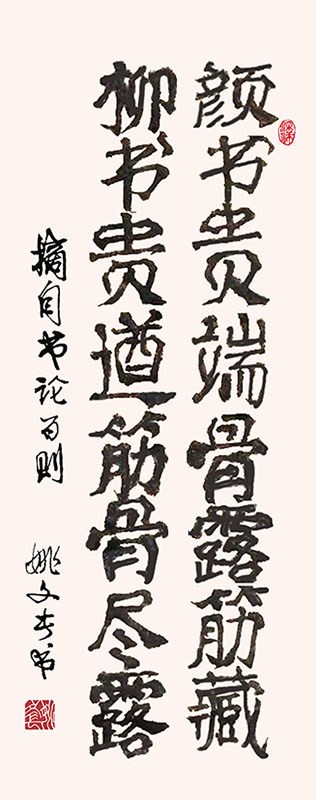 颜书贵端骨露筋藏
柳书贵遒筋骨尽露
摘自书论百则
姚文书